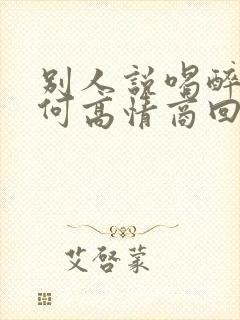 别人说喝醉
何高情商回
艾啓蒙